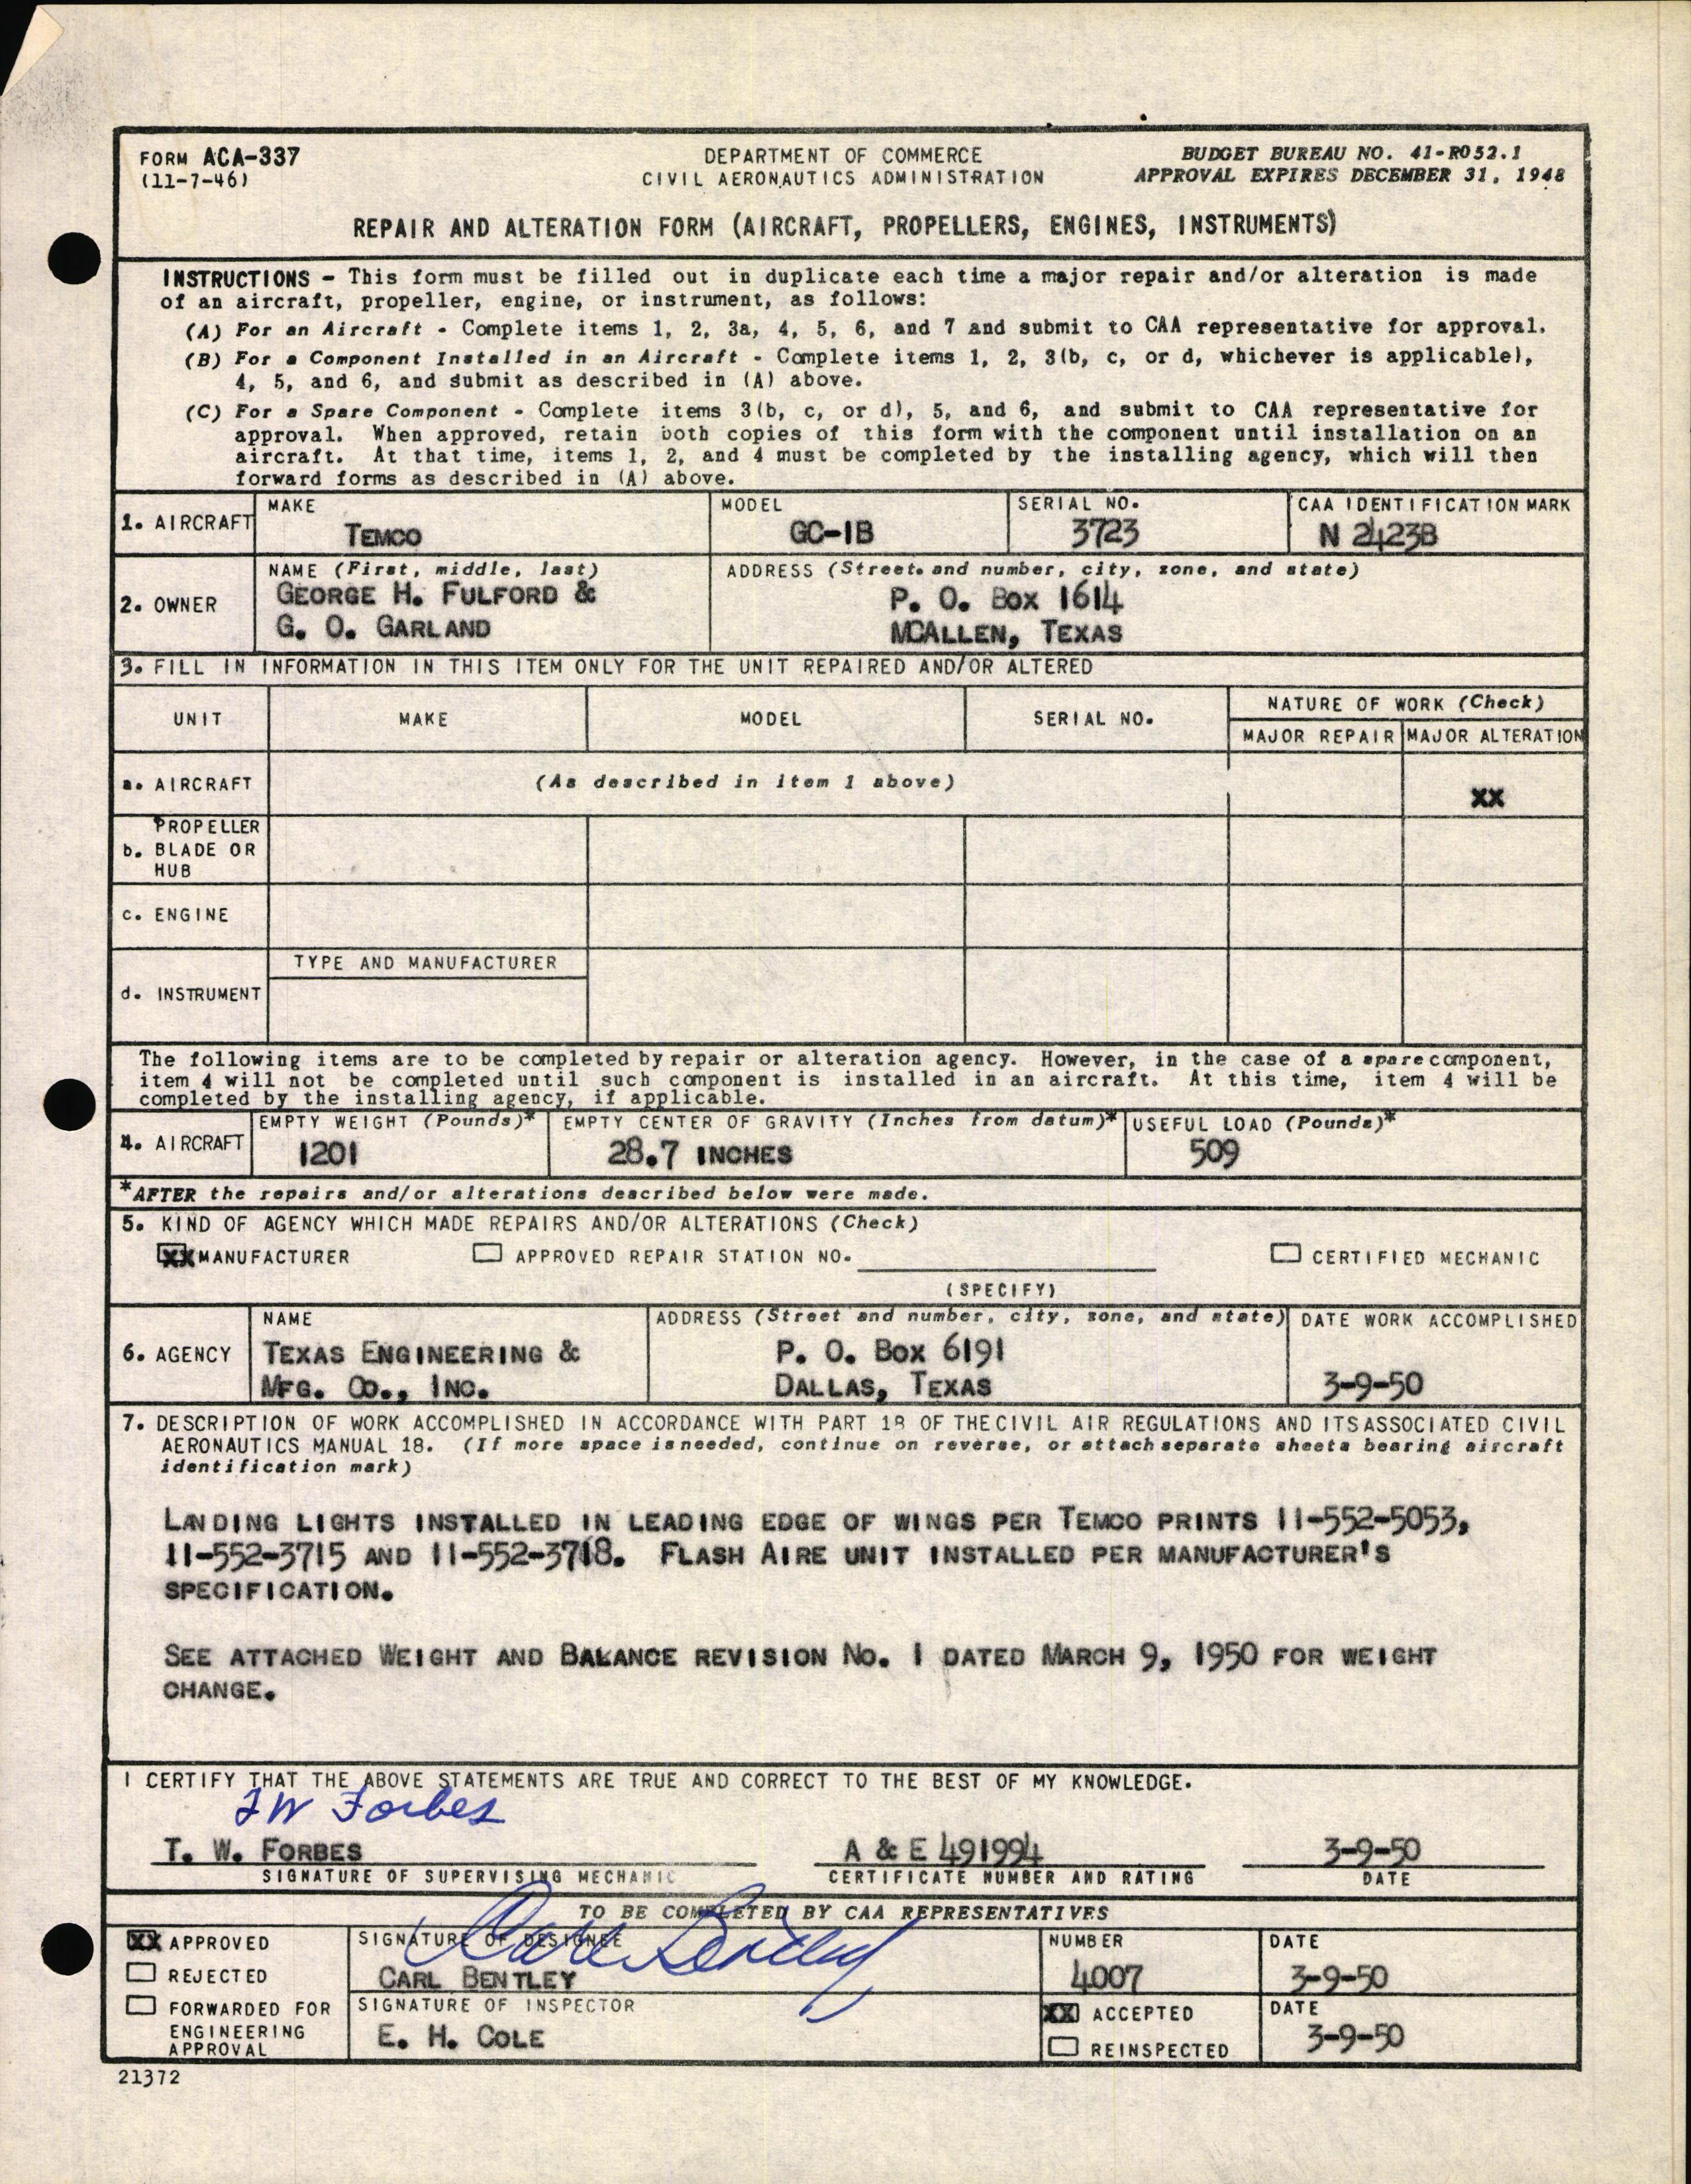 FORM ACA-337
(11-7-46)
DEPARTMENT OF COMMERCE
CIVIL AERONAUTICS ADMINISTRATION
BUDGET BUREAU NO. 41-R052.1
APPROVAL EXPIRES DECEMBER 31, 1948
REPAIR AND ALTERATION FORM (AIRCRAFT, PROPELLERS, ENGINES, INSTRUMENTS)
INSTRUCTIONS - This form must be filled out in duplicate each time a major repair and/or alteration is made
of an aircraft, propeller, engine, or instrument, as follows:
(A) For an Aircraft - Complete items 1, 2, 3a, 4, 5, 6, and 7 and submit to CAA representative for approval.
(B) For a Component Installed in an Aircraft - Complete items 1, 2, 3(b, c, or d, whichever is applicable),
4, 5, and 6, and submit as described in (A) above.
(C) For a Spare Component - Complete items 3(b, c, or d), 5, and 6, and submit to CAA representative for
approval. When approved, retain both copies of this form with the component until installation on an
aircraft. At that time, items 1, 2, and 4 must be completed by the installing agency, which will then
forward forms as described in (A) above.
1. AIRCRAFT
MAKE
TEMCO
MODEL
GC-1B
SERIAL NO.
3723
CAA IDENTIFICATION MARK
N 2423B
2. OWNER
NAME (First, middle, last)
GEORGE H. FULFORD &
G. O. GARLAND
ADDRESS (Street and number, city, zone, and state)
P. O. BOX 1614
MCALLEN, TEXAS
3. FILL IN INFORMATION IN THIS ITEM ONLY FOR THE UNIT REPAIRED AND/OR ALTERED
UNIT
MAKE
MODEL
SERIAL NO.
NATURE OF WORK (Check)
MAJOR REPAIR
MAJOR ALTERATION
a. AIRCRAFT
(As described in item 1 above)
XX
b. PROPELLER
BLADE OR
HUB
c. ENGINE
TYPE AND MANUFACTURER
d. INSTRUMENT
The following items are to be completed by repair or alteration agency. However, in the case of a spare component,
item 4 will not be completed until such component is installed in an aircraft. At this time, item 4 will be
completed by the installing agency, if applicable.
4. AIRCRAFT
EMPTY WEIGHT (Pounds)*
1201
EMPTY CENTER OF GRAVITY (Inches from datum)*
28.7 INCHES
USEFUL LOAD (Pounds)*
509
*AFTER the repairs and/or alterations described below were made.
5. KIND OF AGENCY WHICH MADE REPAIRS AND/OR ALTERATIONS (Check)
XX MANUFACTURER
APPROVED REPAIR STATION NO.
CERTIFIED MECHANIC
(SPECIFY)
6. AGENCY
NAME
TEXAS ENGINEERING &
MFG. CO., INC.
ADDRESS (Street and number, city, zone, and state)
P. O. BOX 6191
DALLAS, TEXAS
DATE WORK ACCOMPLISHED
3-9-50
7. DESCRIPTION OF WORK ACCOMPLISHED IN ACCORDANCE WITH PART 18 OF THE CIVIL AIR REGULATIONS AND ITS ASSOCIATED CIVIL
AERONAUTICS MANUAL 18. (If more space is needed, continue on reverse, or attach separate sheets bearing aircraft
identification mark)
LANDING LIGHTS INSTALLED IN LEADING EDGE OF WINGS PER TEMCO PRINTS 11-552-5053,
11-552-3715 AND 11-552-3718. FLASH AIRE UNIT INSTALLED PER MANUFACTURER'S
SPECIFICATION.
SEE ATTACHED WEIGHT AND BALANCE REVISION NO. 1 DATED MARCH 9, 1950 FOR WEIGHT
CHANGE.
I CERTIFY THAT THE ABOVE STATEMENTS ARE TRUE AND CORRECT TO THE BEST OF MY KNOWLEDGE.
TW Forbes
T. W. FORBES
A & E 491994
3-9-50
SIGNATURE OF SUPERVISING MECHANIC
CERTIFICATE NUMBER AND RATING
DATE
TO BE COMPLETED BY CAA REPRESENTATIVES
XX APPROVED
REJECTED
FORWARDED FOR
ENGINEERING
APPROVAL
SIGNATURE OF DESIGNEE
Carl Bentley
CARL BENTLEY
NUMBER
4007
DATE
3-9-50
SIGNATURE OF INSPECTOR
E. H. COLE
XX ACCEPTED
REINSPECTED
DATE
3-9-50
21372